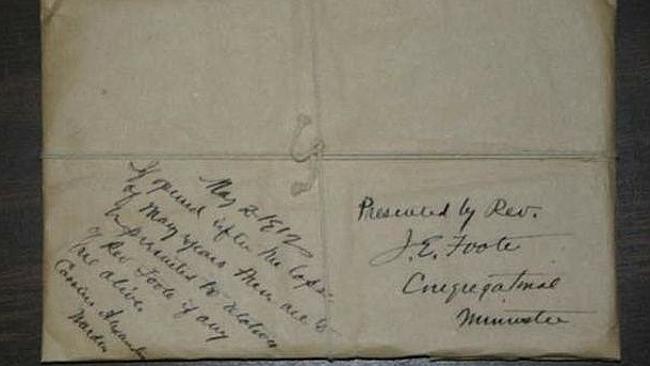 May 2 1912
If opened after the lapse
of many years these are to
be presented to relatives
of Rev. Foote if any
are alive.
Cassius Alexander
Warden
Presented by Rev.
J. E. Foote
Congregational
Minister